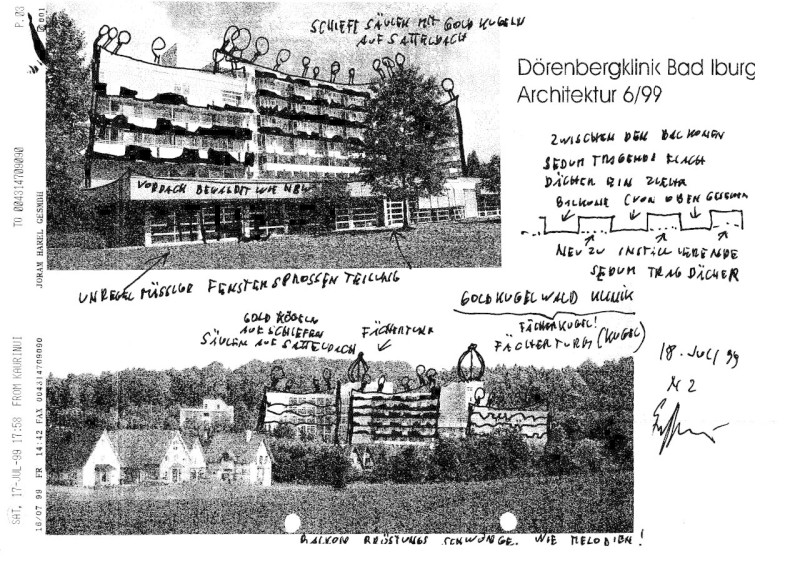 SCHIEFE SÄULEN MIT GOLD KUGELN
AUF SATTELDACH
Dörenbergklinik Bad Iburg
Architektur 6/99
ZWISCHEN DEN BALKONEN
SEDUM TRAGENDE FLACH
DÄCHER EIN
BALKONE (VON OBEN GESEHEN
NEU ZU INSTALLIERENDE
SEDUM TRAG DÄCHER
VORDACH BEWALDET WIE
UNREGELMÄSSIGE FENSTERSPROSSEN TEILUNG
GOLDKUGELWALD KLINIK
GOLD KUGELN
AUF SCHIEFEN
SÄULEN AUF SATTELDACH
FÄCHERTURM
FÄCHERKUGEL!
FÄCHERTURM (KUGEL)
18. JULI 99
N 2
BALKON BRÜSTUNGS SCHWÜNGE. WIE MELODIEN!
P.03
001
TO 004314709090
JORAM HAREL GESMBH
SAT, 17-JUL-99 17:58 FROM KAURINUI
16/07 99 FR 14:42 FAX 004314709090